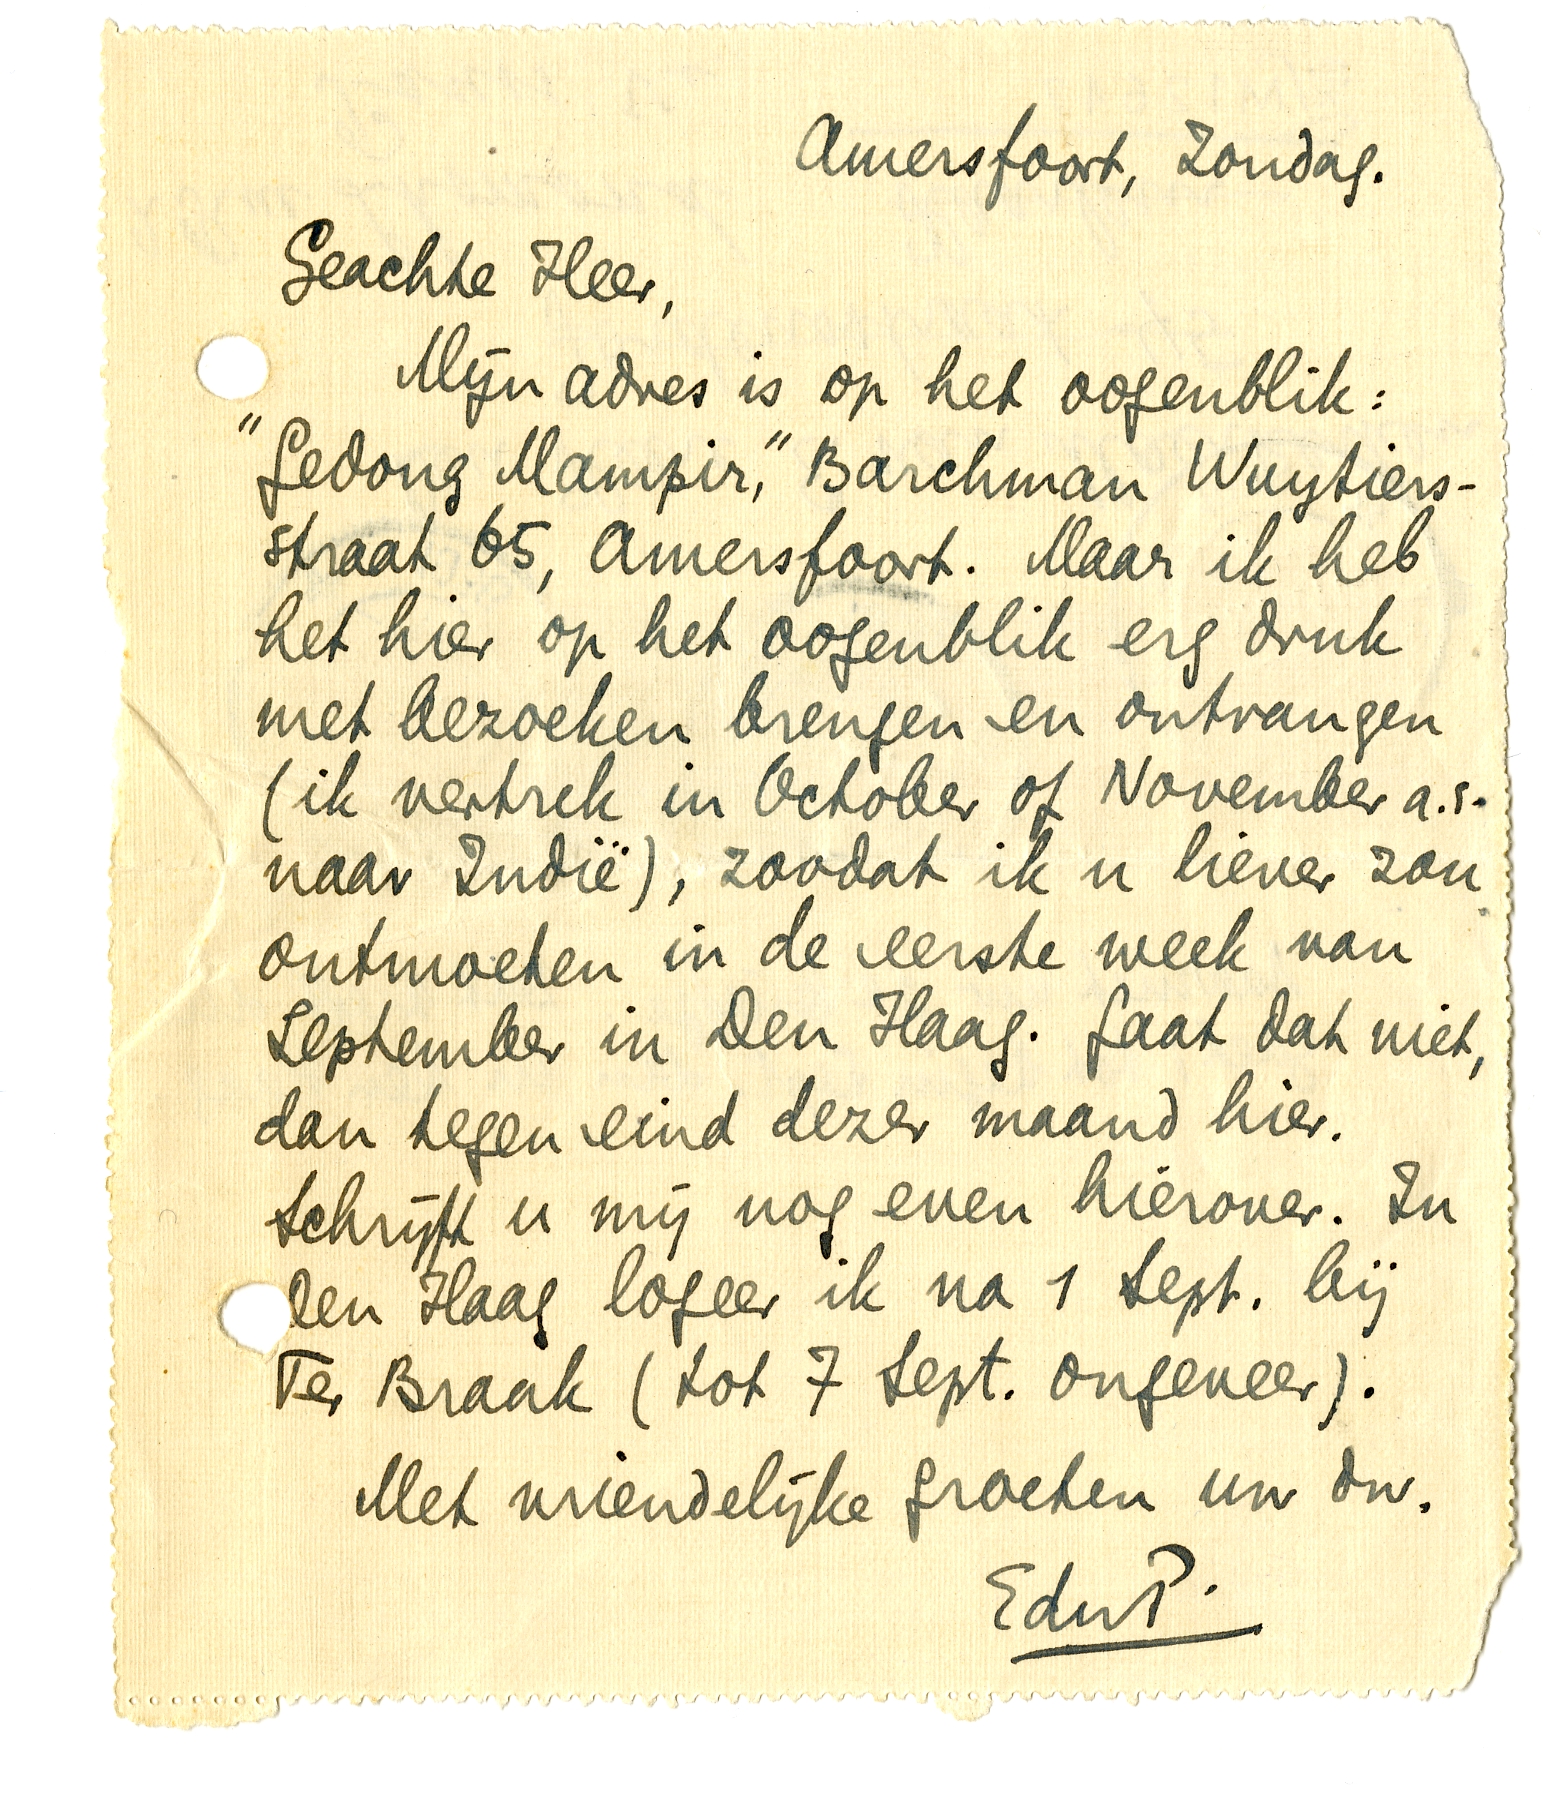 Amersfoort, Zondag.
Geachte Heer,
Mijn adres is op het oogenblik:
"Gedong Mampir," Barchman Wuytiers-
straat 65, Amersfoort. Maar ik heb
het hier op het oogenblik erg druk
met bezoeken brengen en ontvangen
(ik vertrek in October of November a.s.
naar Indië), zoodat ik u liever zou
ontmoeten in de eerste week van
September in Den Haag. Gaat dat niet,
dan tegen eind dezer maand hier.
Schrijft u mij nog even hierover. In
Den Haag logeer ik na 1 Sept. bij
Ter Braak (tot 7 Sept. ongeveer).
Met vriendelijke groeten uw dw.
EduP.